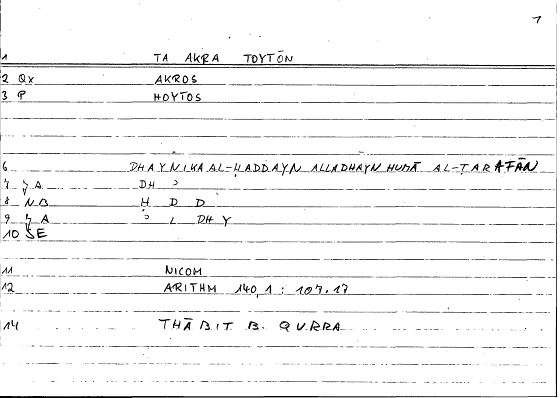 1
1 TA AKRA TOYTŌN
2 Qx AKROS
3 P HOYTOS
6 DHAYNIKA AL-ḤADDAYN ALLADHAYN HUMĀ AL-ṬARAFĀN
7 A DH
8 NB Ḥ D D
9 A L DH Y
10 SE
11 NICOM
12 ARITHM 140,1 : 107.17
14 THĀBIT B. QURRA